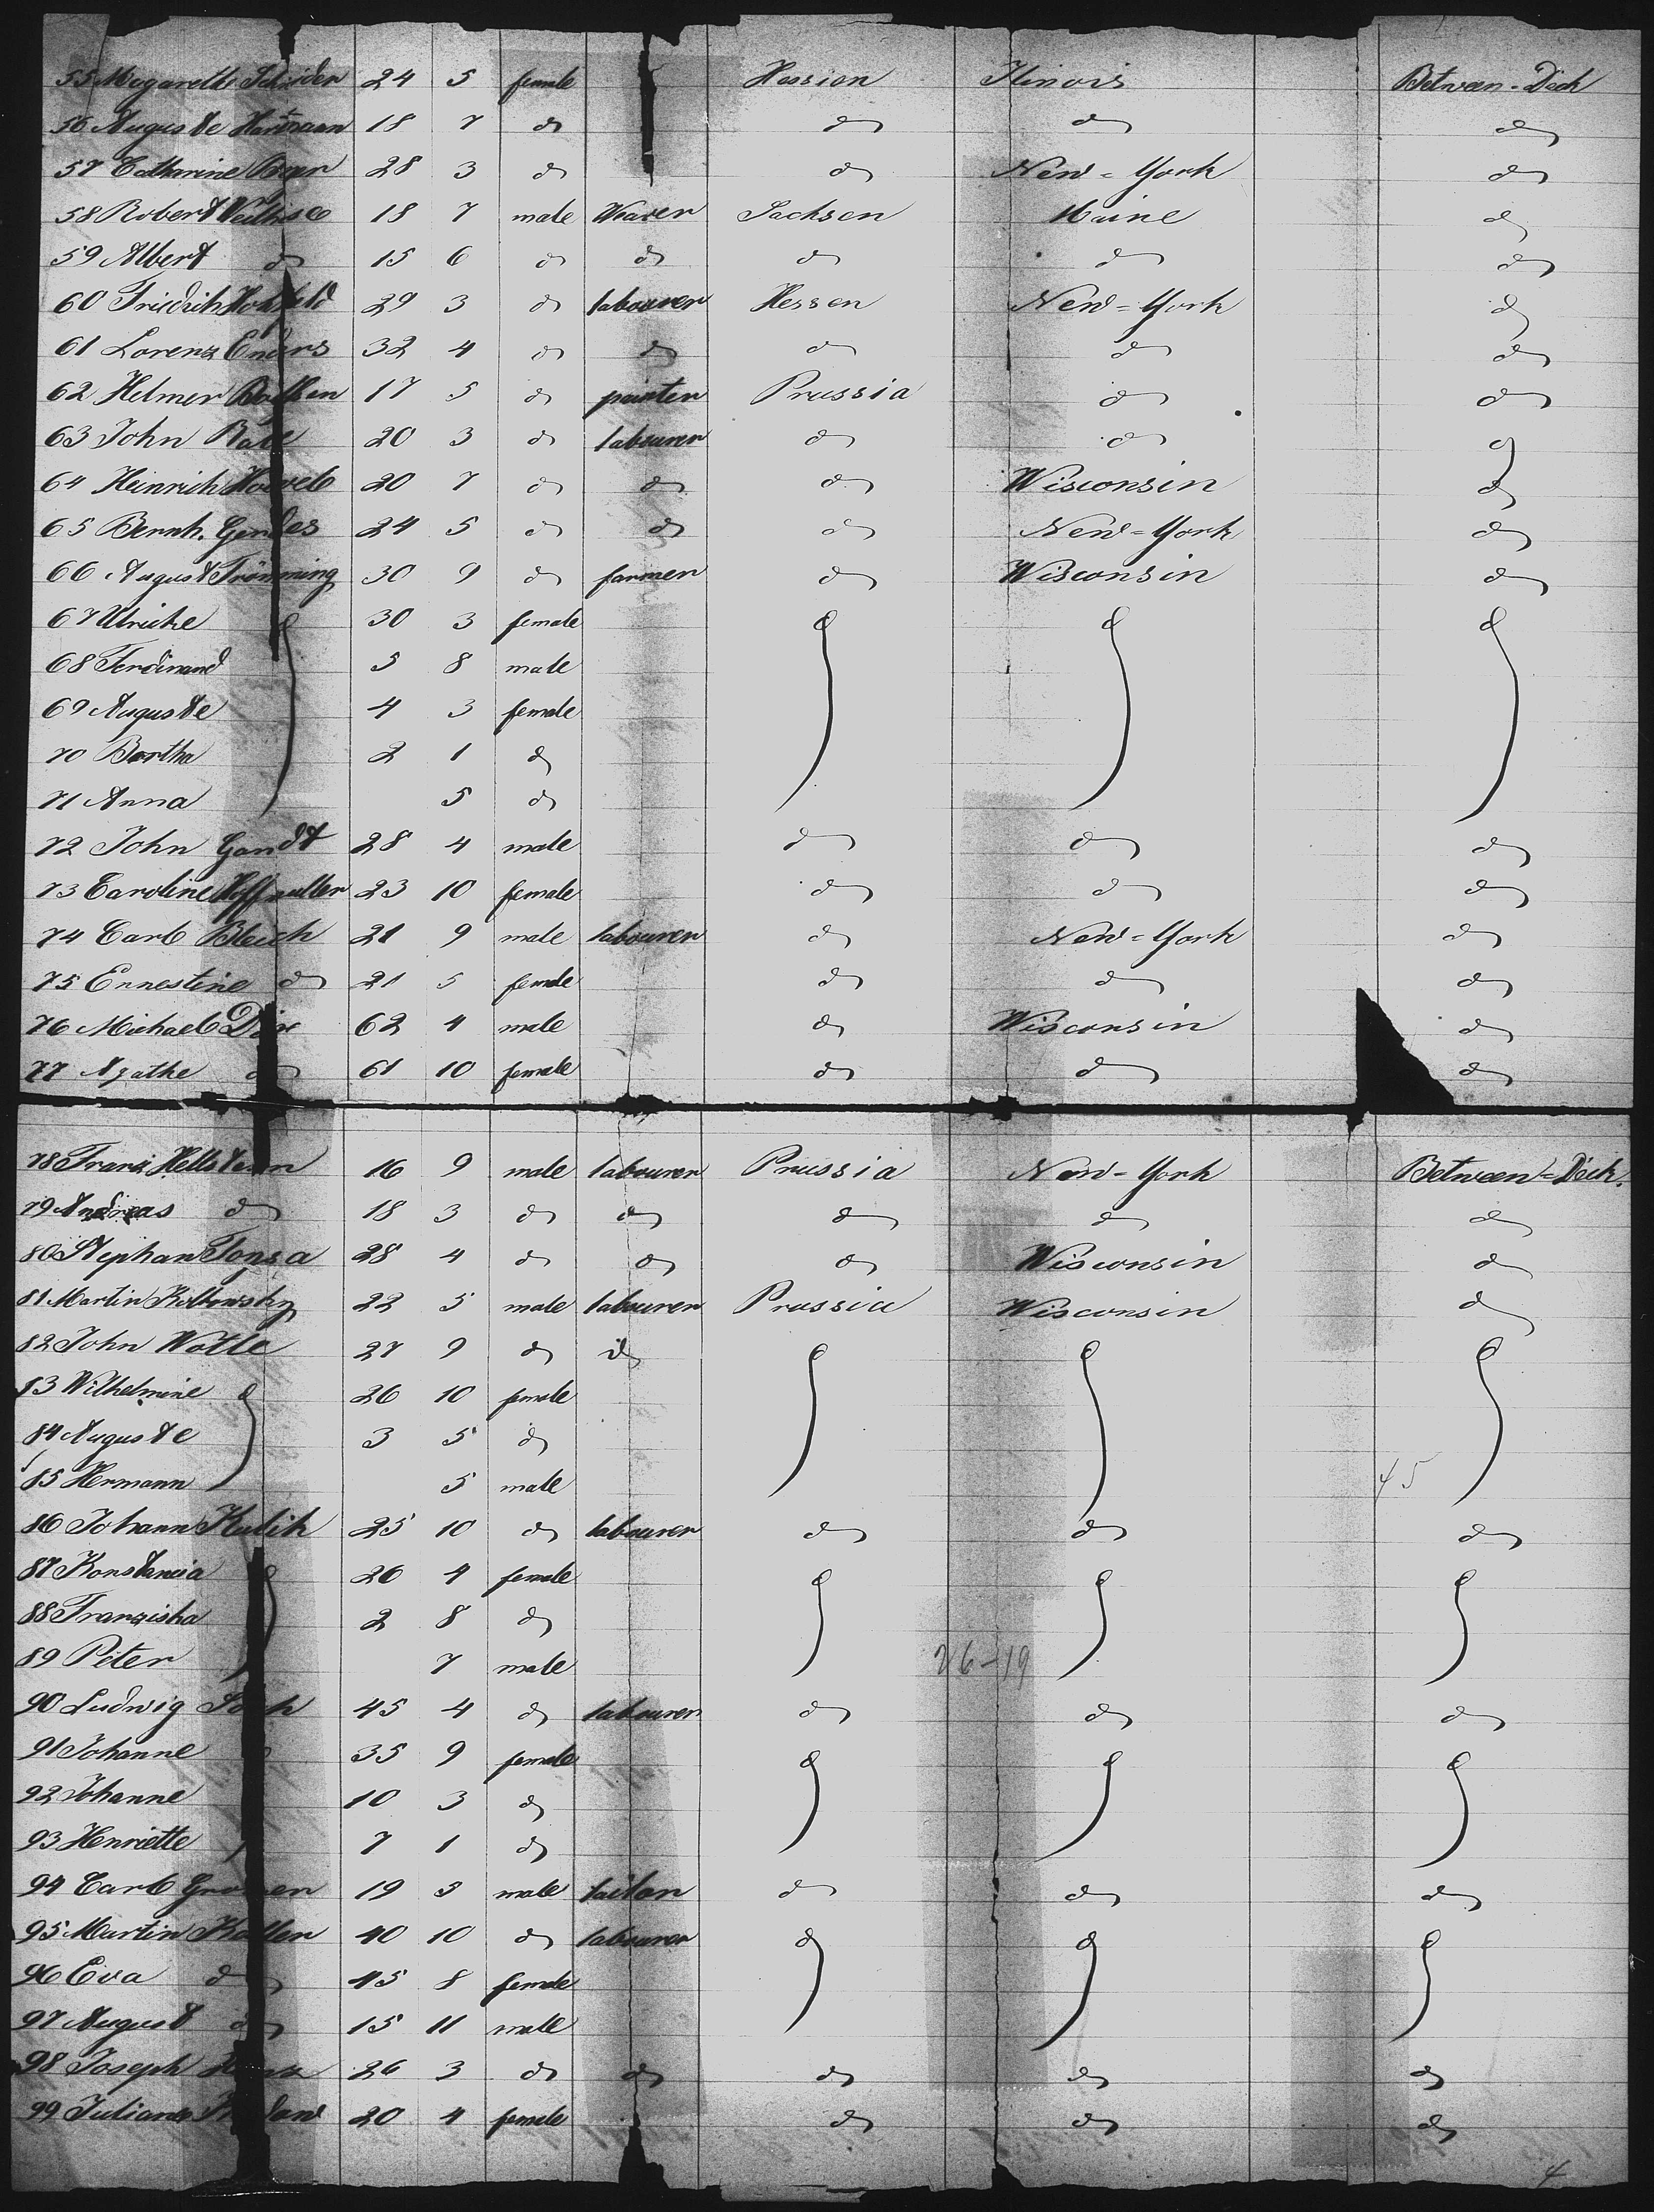 55 Magareth Schneider 24 5 female Hessien Ilinois Between-Deck
56 Auguste Hartmann 18 7 do do do do
57 Catharine 28 3 do do New-York do
58 Robert 18 7 male Weaver Sachsen Maine do
59 Albert do 15 6 do do do do do
60 Friedrich 29 3 do labourer Hessen New-York do
61 Lorenz Enders 32 4 do do do do do
62 Helmer 17 5 do painter Prussia do do
63 John 20 3 do labourer do do do
64 Heinrich 20 7 do do do Wisconsin do
65 Bernh. Gerdes 24 5 do do do New-York do
66 August Trömming 30 9 do farmer do Wisconsin do
67 Ulrike d 30 3 female d d d
68 Ferdinand 5 8 male
69 Auguste 4 3 female
70 Bertha 2 1 do
71 Anna 5 do
72 John Gandt 28 4 male do do do
73 Caroline Hoffmuller 23 10 female do do do
74 Carl Bleich 21 9 male labourer do New-York do
75 Ernestine do 21 5 female do do do
76 Michael 62 4 male do Wisconsin do
77 Agathe do 61 10 female do do do
78 Franz 16 9 male labourer Prussia New-York Between-Deck.
79 Andreas do 18 3 do do do do do
80 Stephan Tonsa 28 4 do do do Wisconsin do
81 Martin Koltowsky 22 5 male labourer Prussia Wisconsin do
82 John Wolle 27 9 do do d d d
83 Wilhelmine d 26 10 female
84 Auguste 3 5 do
85 Hermann 5 male 45
86 Johann Kulik 25 10 do labourer do do do
87 Konstancia 26 4 female d d d
88 Franziska 2 8 do
89 Peter 7 male 26-19
90 Ludwig 45 4 do labourer do do do
91 Johanne 35 9 female d d d
92 Johanne 10 3 do
93 Henriette 7 1 do
94 Carl 19 3 male tailor do do do
95 Martin 40 10 do labourer d d d
96 Eva do 45 8 female
97 August do 15 11 male
98 Joseph 26 3 do do do do do
99 Juliane 20 4 female do do do
4